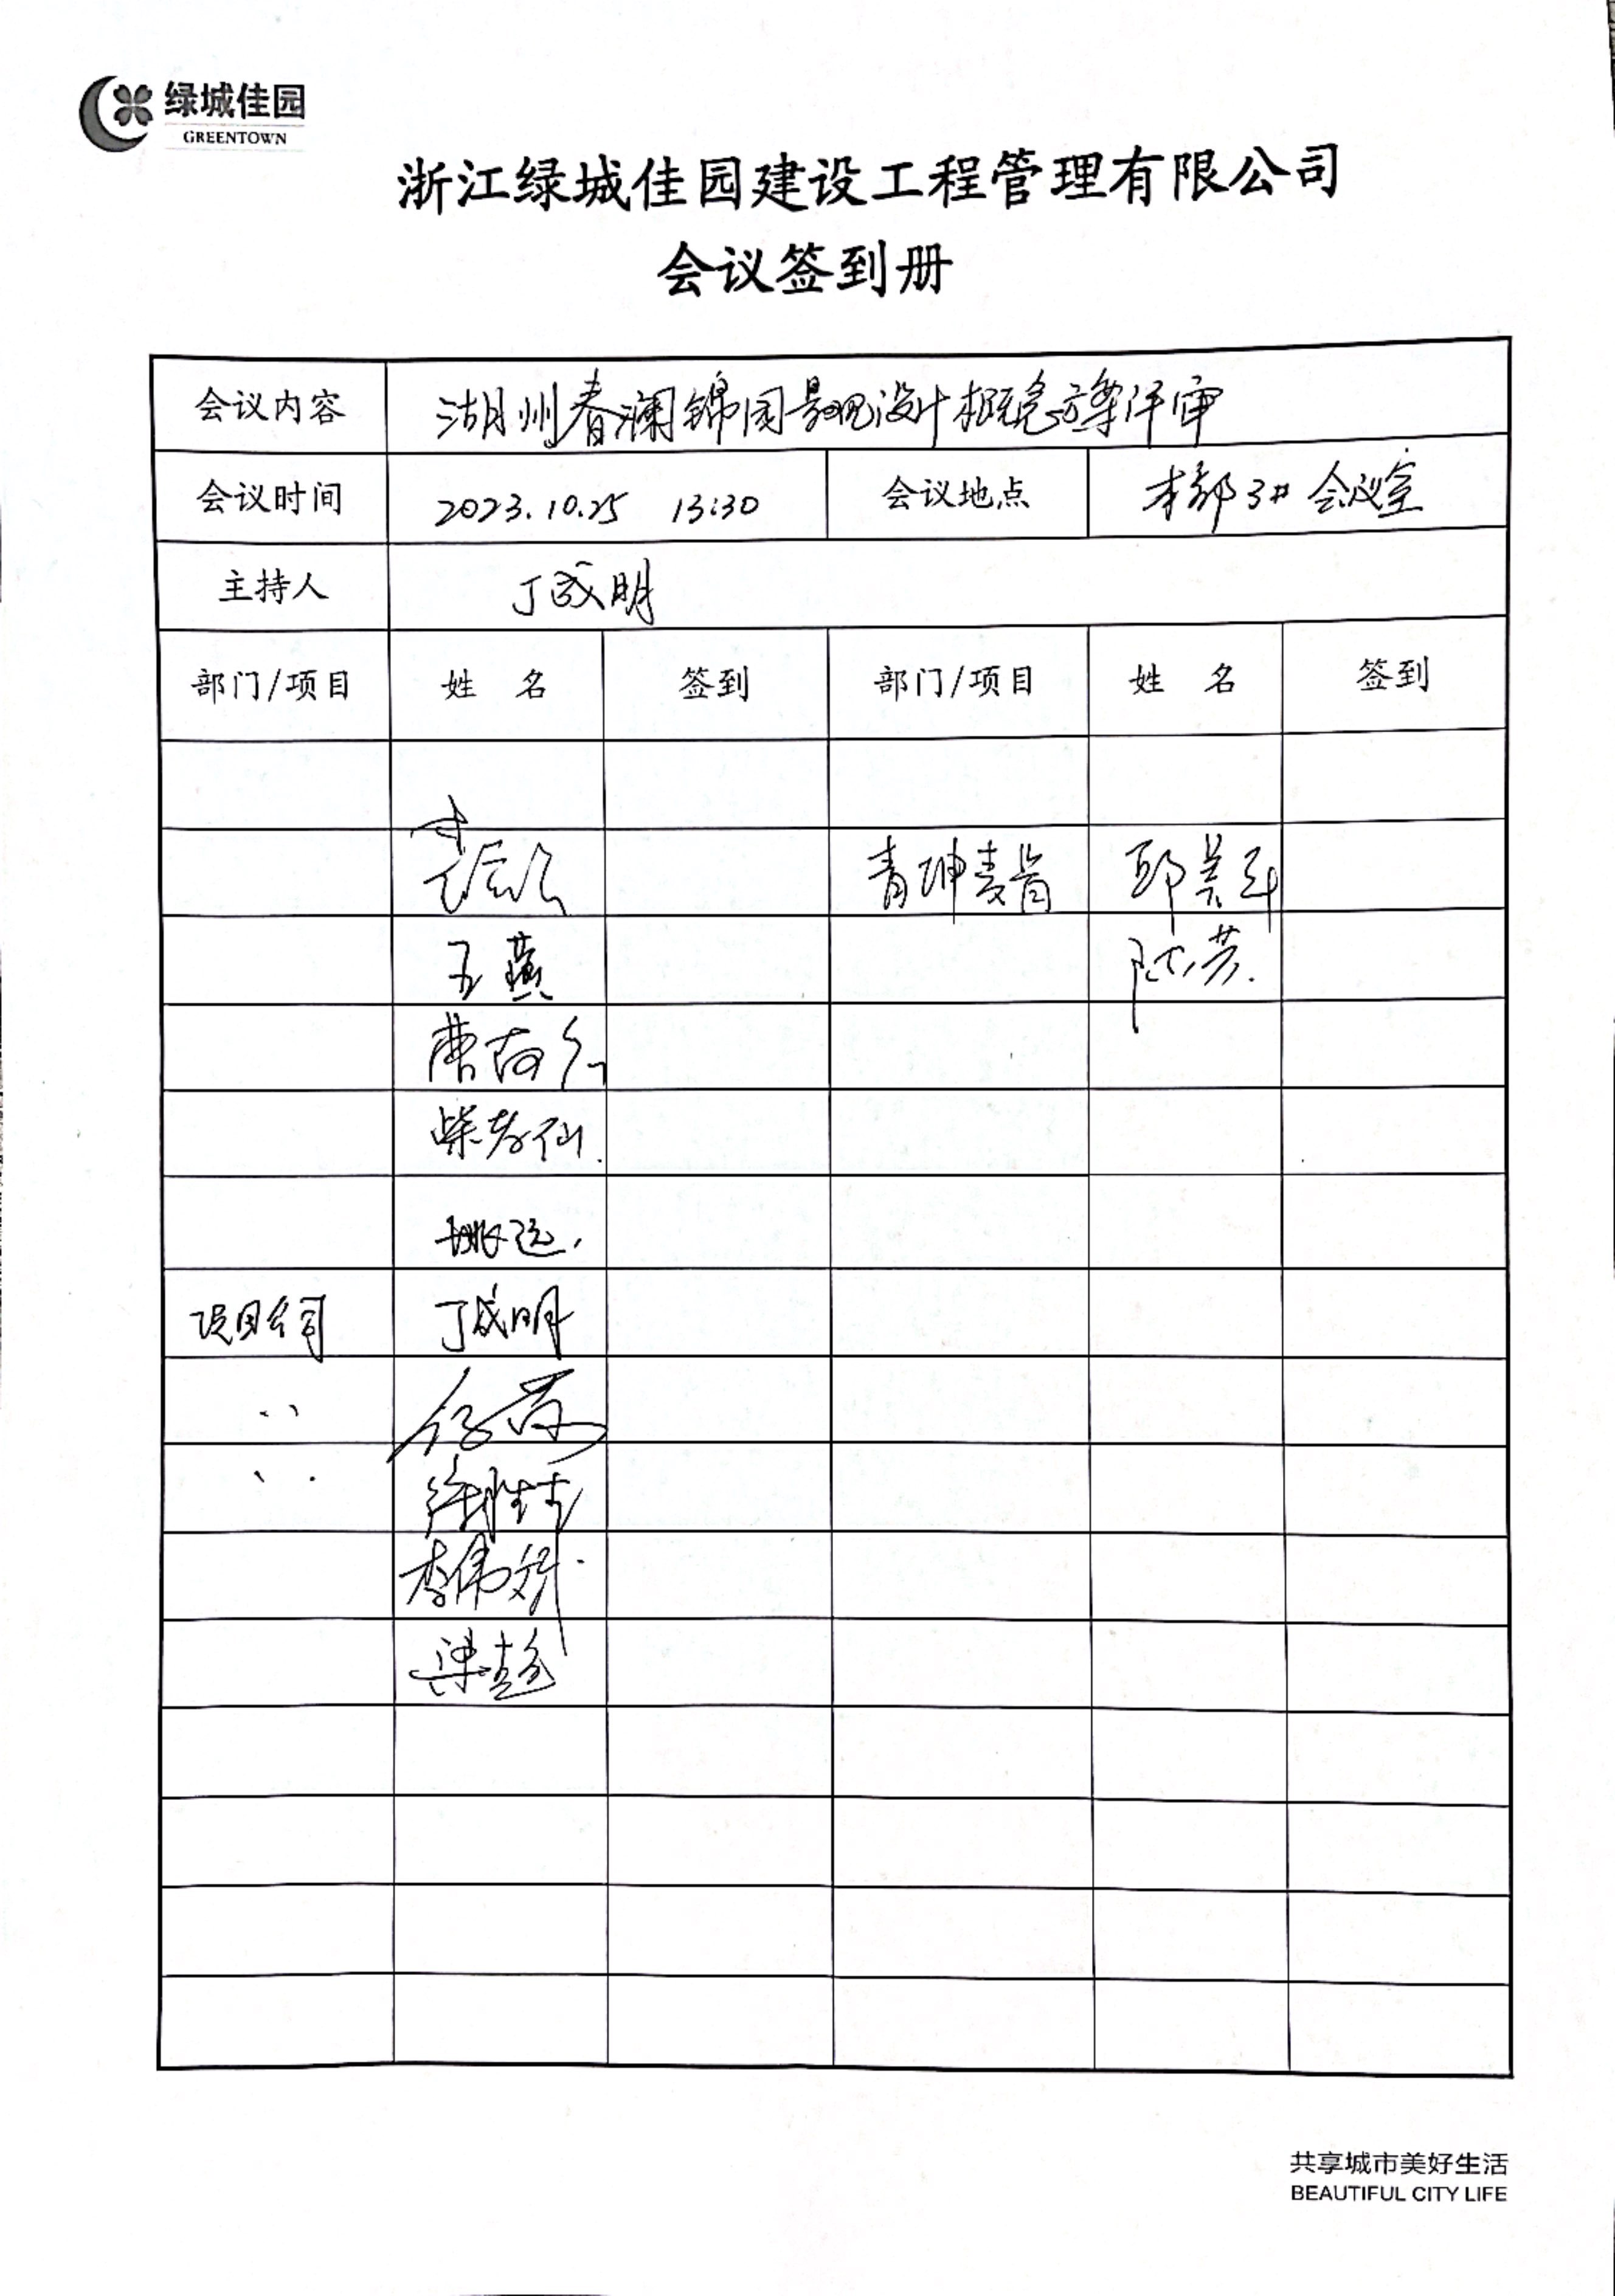 绿城佳园
GREENTOWN
浙江绿城佳园建设工程管理有限公司
会议签到册
会议内容 湖州春澜锦园景观设计概念方案评审
会议时间 2023.10.25 13:30 会议地点 本部3# 会议室
主持人 丁成明
部门/项目 姓 名 签到 部门/项目 姓 名 签到
王燕 陆芳
柴孝仙
姚远
项目公司 丁成明
李伟
梁彭
共享城市美好生活
BEAUTIFUL CITY LIFE